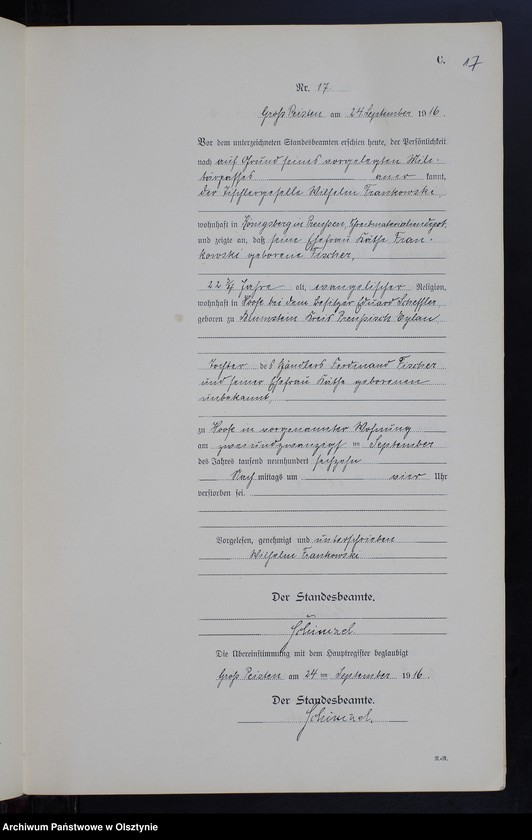 C.
17
Nr. 17
Groß Peisten am 24 September 1916.
Vor dem unterzeichneten Standesbeamten erschien heute, der Persönlichkeit
nach auf Grund seines vorgelegten Mili-
tärpasses aner kannt,
der Tischlergeselle Wilhelm Frankowski,
wohnhaft in Königsberg in Preußen,
und zeigte an, daß seine Ehefrau Käthe Fran-
kowski geborene Fischer,
22 3/4 Jahre alt, evangelischer Religion,
wohnhaft in Hoofe bei dem Besitzer Eduard Scheffler,
geboren zu Blumstein Kreis Preußisch Eylau
Tochter des Händlers Ferdinand Fischer
und seiner Ehefrau Käthe geborenen
unbekannt,
zu Hoofe in vorgenannter Wohnung
am zweiundzwanzigsten September
des Jahres tausend neunhundert sechzehn
Nach mittags um vier Uhr
verstorben sei.
Vorgelesen, genehmigt und unterschrieben
Wilhelm Frankowski
Der Standesbeamte.
Schimael
Die Übereinstimmung mit dem Hauptregister beglaubigt
Groß Peisten am 24 ten September 1916.
Der Standesbeamte.
Schimael.
Archiwum Państwowe w Olsztynie